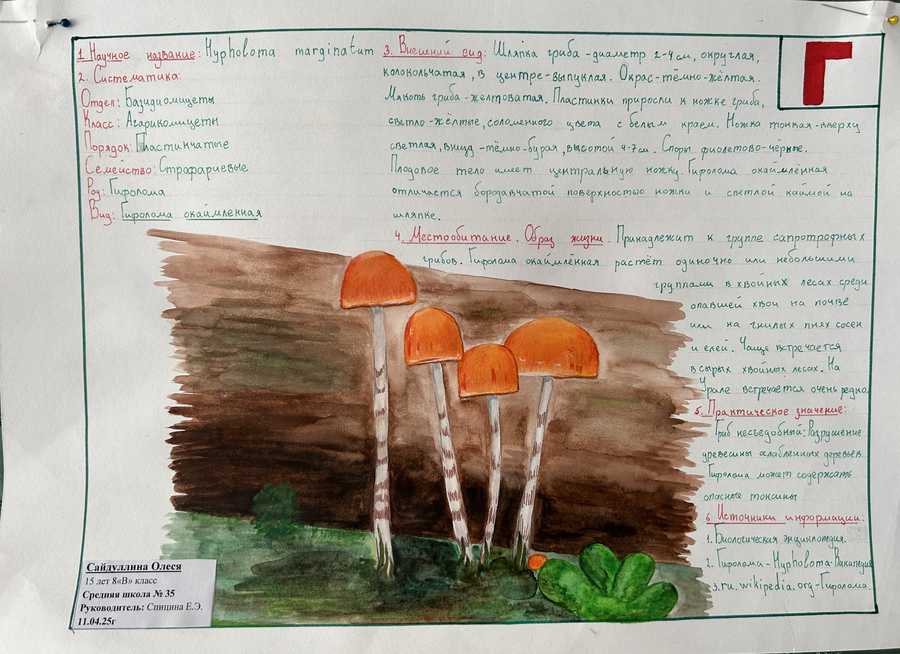 1. Научное название: Hypholoma marginatum
2. Систематика:
Отдел: Базидиомицеты
Класс: Агарикомицеты
Порядок: Пластинчатые
Семейство: Строфариевые
Род: Гифолома
Вид: Гифолома окаймленная
3. Внешний вид: Шляпка гриба - диаметр 2-4 см, округлая,
колокольчатая, в центре - выпуклая. Окрас - тёмно-жёлтая.
Мякоть гриба - желтоватая. Пластинки приросли к ножке гриба,
светло-жёлтые, соломенного цвета с белым краем. Ножка тонкая - вверху
светлая, внизу - тёмно-бурая, высотой 4-7 см. Споры фиолетово-чёрные.
Плодовое тело имеет центральную ножку. Гифолома окаймлённая
отличается бородавчатой поверхностью ножки и светлой каймой на
шляпке.
4. Местообитание. Образ жизни. Принадлежит к группе сапротрофных
грибов. Гифолома окаймлённая растёт одиночно или небольшими
группами в хвойных лесах среди
опавшей хвои на почве
или на гнилых пнях сосен
и елей. Чаще встречается
в сырых хвойных лесах. На
Урале встречается очень редко
5. Практическое значение:
Гриб несъедобный. Разрушение
древесины ослабленных деревьев.
Гифолома может содержать
опасные токсины
6. Источники информации:
1. Биологическая энциклопедия.
2. Гифолома - Hypholoma - Википедия
3. ru.wikipedia.org - Гифолома.
Г
Сайдуллина Олеся
15 лет 8«В» класс
Средняя школа № 35
Руководитель: Спицина Е.Э.
11.04.25г